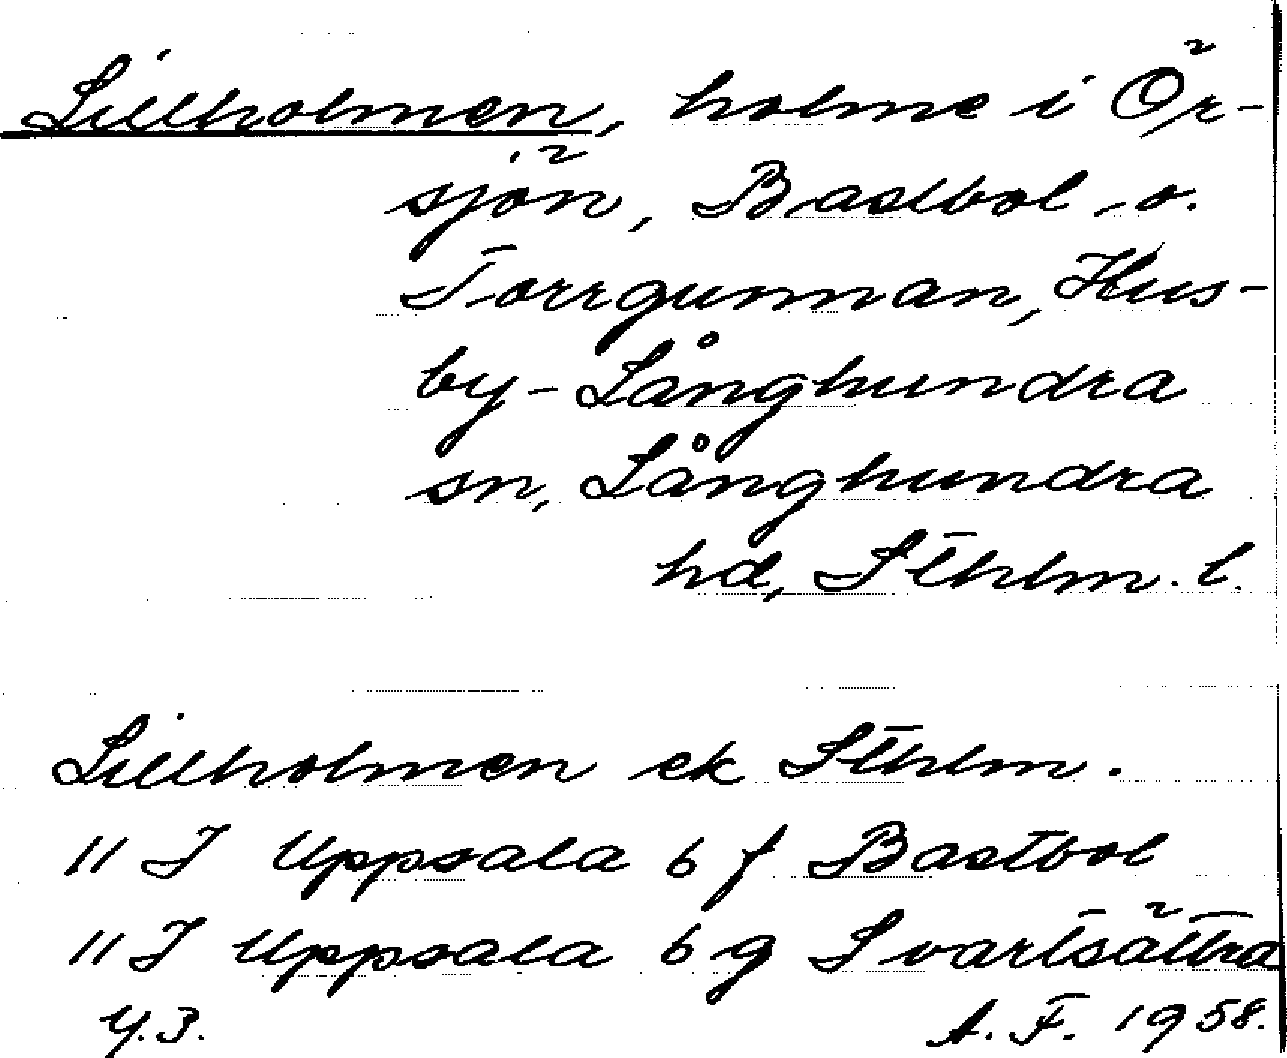 Lillholmen, holme i Ör-
sjön, Bastbol o.
Torrgunnan, Hus-
by-Långhundra
sn, Långhundra
hd, Sthlm. l.
Lillholmen ek Sthlm.
11 I Uppsala 6 f Bastbol
11 I Uppsala 6 g Svartsättra
Y.3. A.F. 1958.